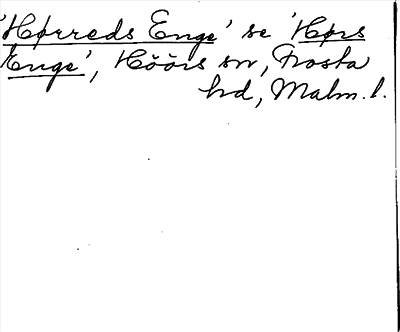 'Hørreds Enge' se 'Hørs
Enge', Höörs sn, Frosta
hd, Malm. l.